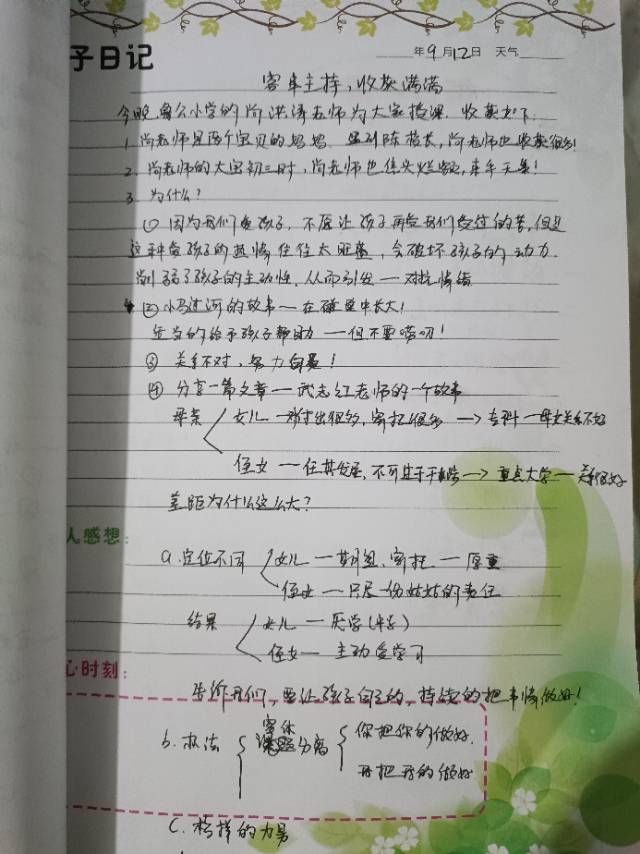 子日记
年9月12日 天气
客串主持，收获满满
今晚，小学的尚洪涛老师为大家授课，收获如下
1. 尚老师是两个宝贝的妈妈，遇到陈校长，尚老师也收获很多！
2. 尚老师的大宝初三时，尚老师也焦头烂额，束手无策！
3. 为什么？
① 因为我们爱孩子，不愿让孩子再受我们受过的苦，但是
这种爱孩子的热情往往太，会破坏孩子的动力，
削弱了孩子的主动性，从而引发一对抗情绪
② 小马过河的故事一在碰壁中长大！
适当的给予孩子帮助一但不要唠叨！
③ 关系不对，努力白费！
④ 分享一篇文章一武志红老师的一个故事
母亲 女儿一付出很多，寄托很多→专科一母女关系不好
侄女一任其发展，不过于干涉→重点大学一关系很好
差距为什么这么大？
人感想：
a. 定位不同 女儿一期望、寄托一厚重
侄女一只尽一份姑姑的责任
结果 女儿一厌学(中专)
侄女一主动爱学习
心时刻：
告诉我们，要让孩子自主的、持续的把事情做好！
b. 办法 课题分离 你把你的做好，
我把我的做好
C. 榜样的力量